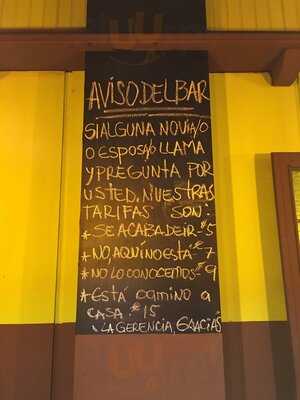 AVISO DEL BAR
SI ALGUNA NOVIA/O
O ESPOSA/O LLAMA
Y PREGUNTA POR
USTED. NUESTRAS
TARIFAS SON:
* SE ACABA DE IR - $5
* NO, AQUÍ NO ESTÁ - $7
* NO LO CONOCEMOS - $9
* ESTÁ CAMINO A
CASA: $15
LA GERENCIA, GRACIAS